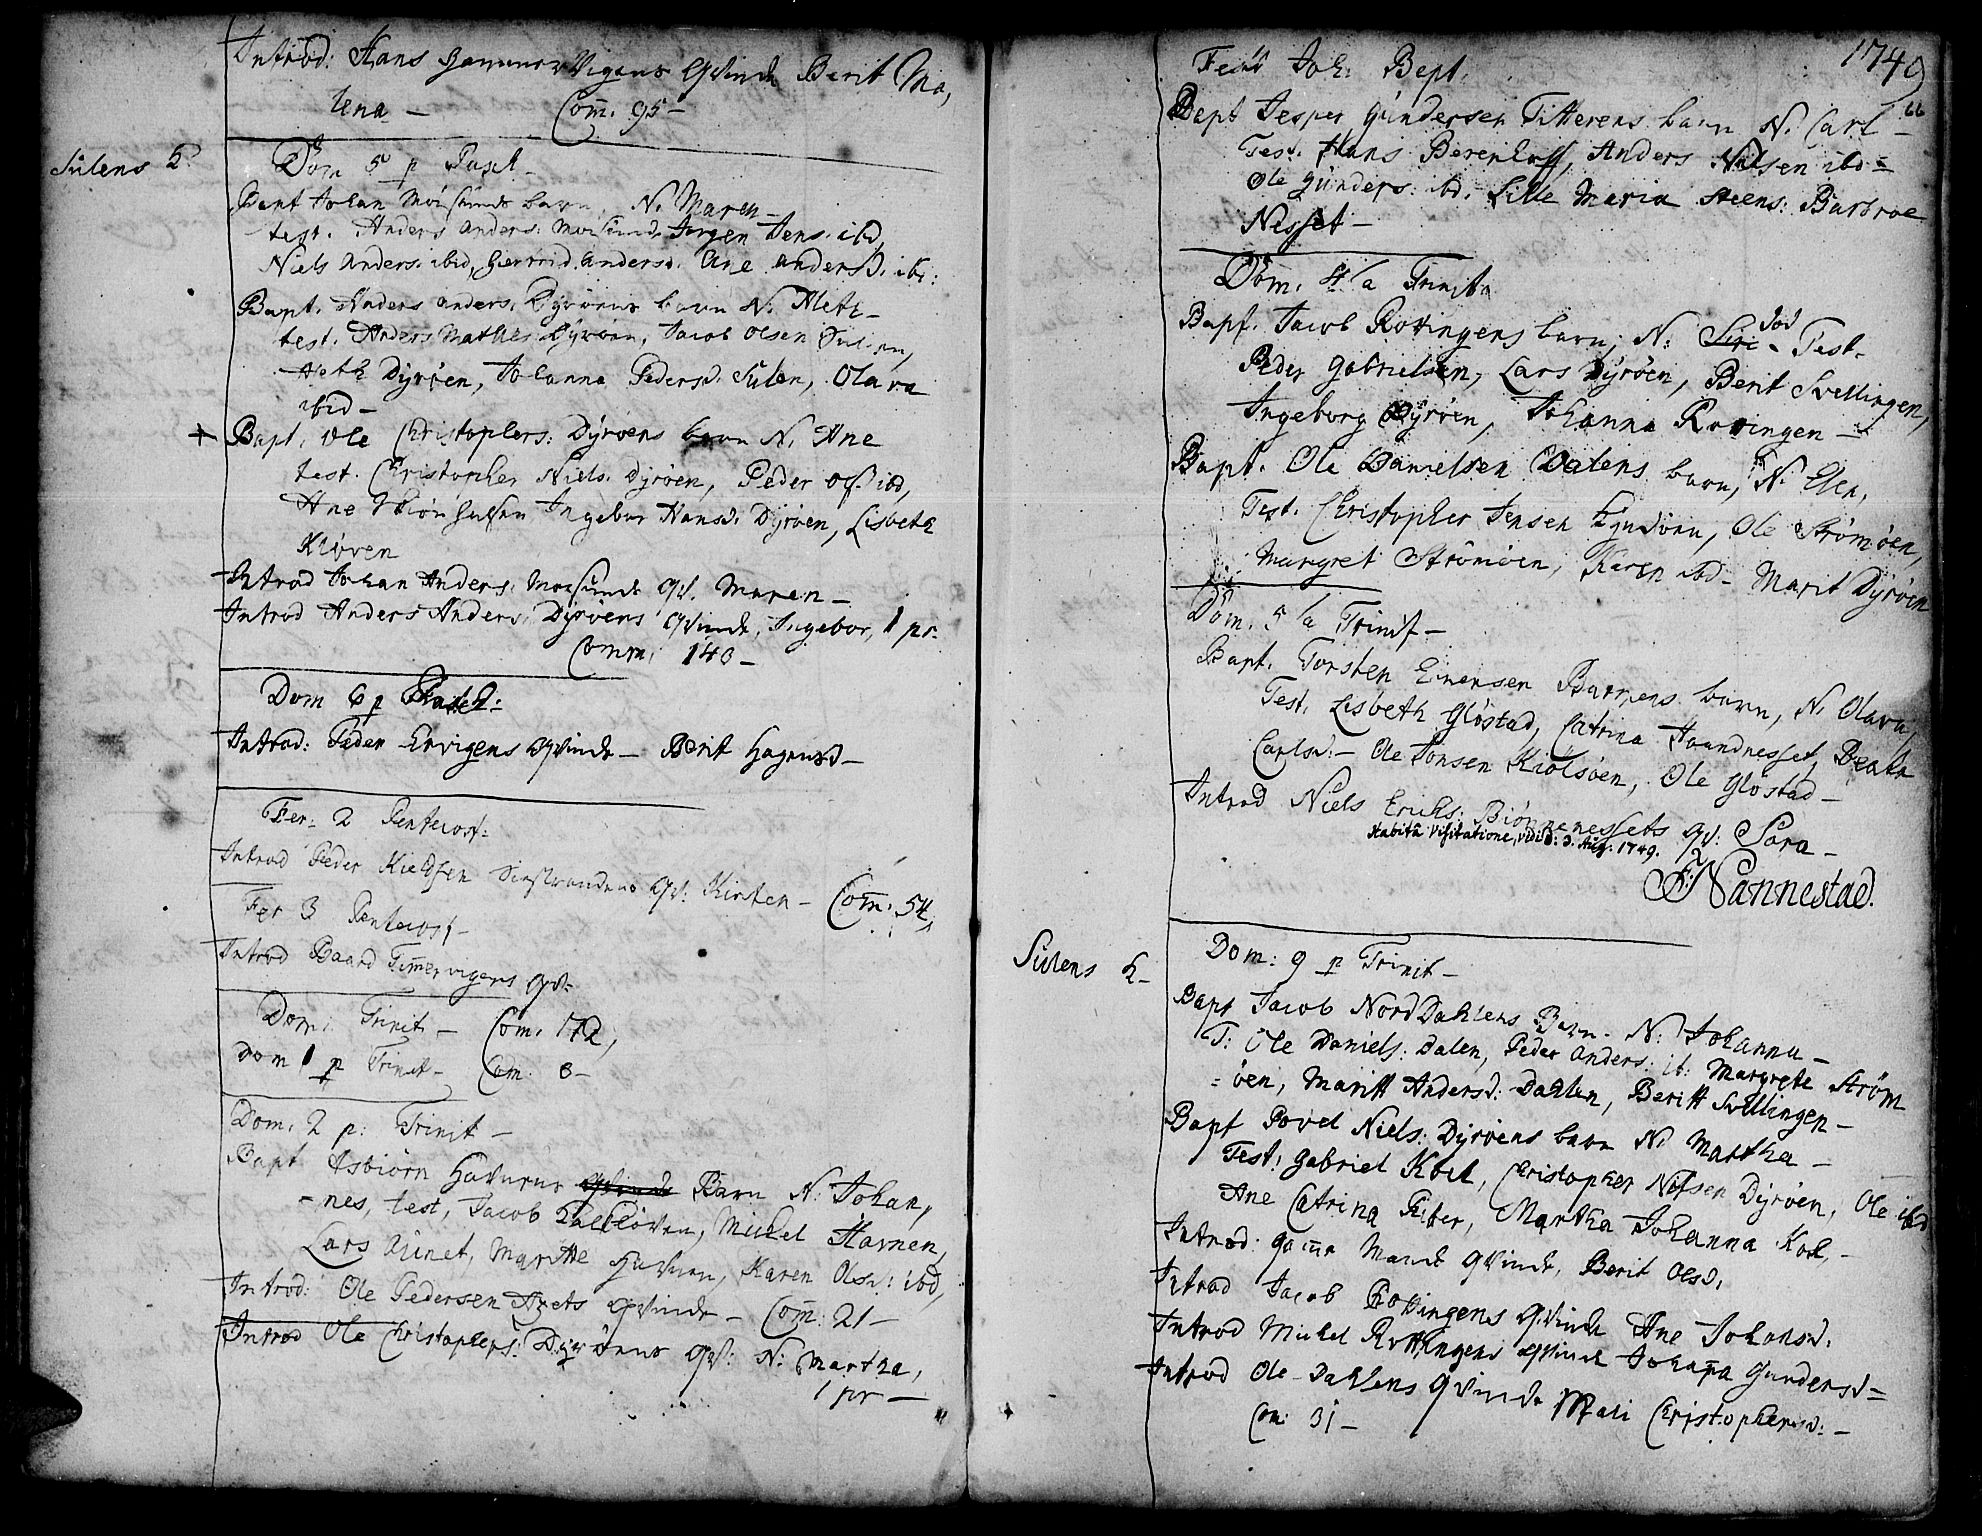 Introd: Hans Hammervigens Qvinde Berit Ma,
lena – Com̄. 95 –
Sulens K.
Dom 5 p Pasch –
Bapt Johan Morsunds barn, N. Maren –
test. Anders Anders: Morsund, Jørgen Jens. ibd,
Niels Anders. ibid, Anders. Ane Andersd. ibd:
Bapt. Anders Anders. Dyrøens barn N. Mete –
test. Anders Mathes. Dyrøen, Jacob Olsen Sulen,
Meth Dyrøen, Johanna Pedersd. Sulen, Olava
ibid –
+ Bapt. Ole Christophers: Dyrøens barn N. Ane
test. Christopher Niels. Dyrøen, Peder Ols. ibd,
Ane Ingebor Hansd. Dyrøen, Lisbeth
Kløven
Introd Johan Anders. Morsunds qv. Maren –
Introd Anders Anders. Dyrøens Qvinde, Ingebor, 1 pr.
Comm. 140 –
Dom 6 p Pasch:
Introd: Peder Ervigens Qvinde – Berit Hagensd –
Fer: 2 Pentecost:
Introd Peder Kieldsen qv. Kirsten – Com̄: 54,
Fer 3 Pentecost –
Introd Baard Tim̄ervigens qv.
Dom: Trinit – Com. 172,
Dom 1 p Trinit – Com. 8 –
Dom. 2 p: Trinit –
Bapt Asbiørn Havnens Qvinde Barn N: Johan,
nes, test, Jacob Michel Havnen,
Lars Maritte Havnen, Karen Olsd: ibd,
Introd: Ole Pedersen Qvinde – Com̄: 21 –
Introd Ole Christophers: Dyrøens qv: N: Martha,
1 pr –
1749
66
Festo Joh: Bapt.
Bapt Jesper Gundersen Titterens barn N. Carl –
Test. Hans Berenhoff, Anders Nilsen ibd =
Ole Gunders: ibd. Lille Maria Steens: Barbroe
Nesset –
Dom. 4 a Trinit.
Bapt. Jacob Rottingens barn, N: Siri – død Test.
Peder Gabrielsen, Lars Dyrøen, Berit Svellingen,
Ingeborg Dyrøen, Johanna Rottingen –
Bapt. Ole Danielsen Dalens barn, N. Elen,
Test. Christopher Jensen Ole Strømøen,
Margret Strømøen, Karen ibd – Marit Dyrøen
Dom. 5 a Trinit –
Bapt. Torsten Einersen Barmens barn, N. Olava,
Test. Lisbeth Gløstad, Catrina Beata
Carlsd: – Ole Jonsen Kiolsøen, Ole Gløstad –
Introd Niels Erichs: Biønnenessets qv: Sara –
Habitâ Visitatione, vidi d: 3. Aug: 1749.
F: Nannestad.
Sulens K –
Dom: 9 p Trinit –
Bapt Jacob NordDahlens Barn – N: Johanna –
T: Ole Daniels: Dalen, Peder Anders: ib: Margrete Strøm
= øen, Maritt Andersd: Dahlen, Beritt Svellingen –
Bapt Povel Niels: Dyrøens barn N: Martha –
Test: Gabriel Koch, Christopher Nilsen Dyrøen, Ole ibd
Ane Catrina Martha Johanna Koch,
Introd: Qvinde, Berit Olsd,
Introd Jacob Rottingens Qvinde Ane Johansd.
Introd Michel Rottingens Qvinde Johan̄a Gundersd =
Introd Ole Dahlens Qvinde Mali Christophersd: –
Com: 31 –